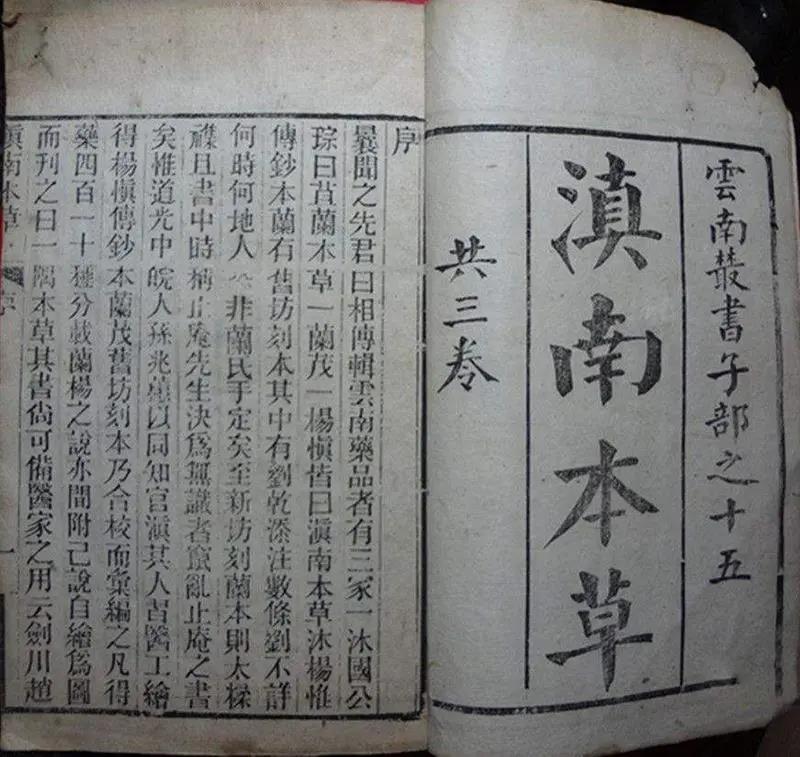 雲南叢書子部之十五
滇南本草
共三卷
序
曩聞之先君曰相傳輯雲南藥品者有三家一沐國公
琮曰苴蘭本草一蘭茂一楊愼皆曰滇南本草沐楊惟
傳鈔本蘭有舊坊刻本其中有劉乾添注數條劉不詳
何時何地人非蘭氏手定矣至新坊刻蘭本則太
襍且書中時稱止庵先生決爲無識者竄亂止庵之書
矣惟道光中皖人孫兆蕙以同知官滇其人習醫工繪
得楊愼傳鈔本蘭茂舊坊刻本乃合校而彙編之凡得
藥四百一十種分載蘭楊之說亦間附己說自繪爲圖
而刊之曰一隅本草其書尙可備醫家之用云劍川趙
滇南本草 序 一